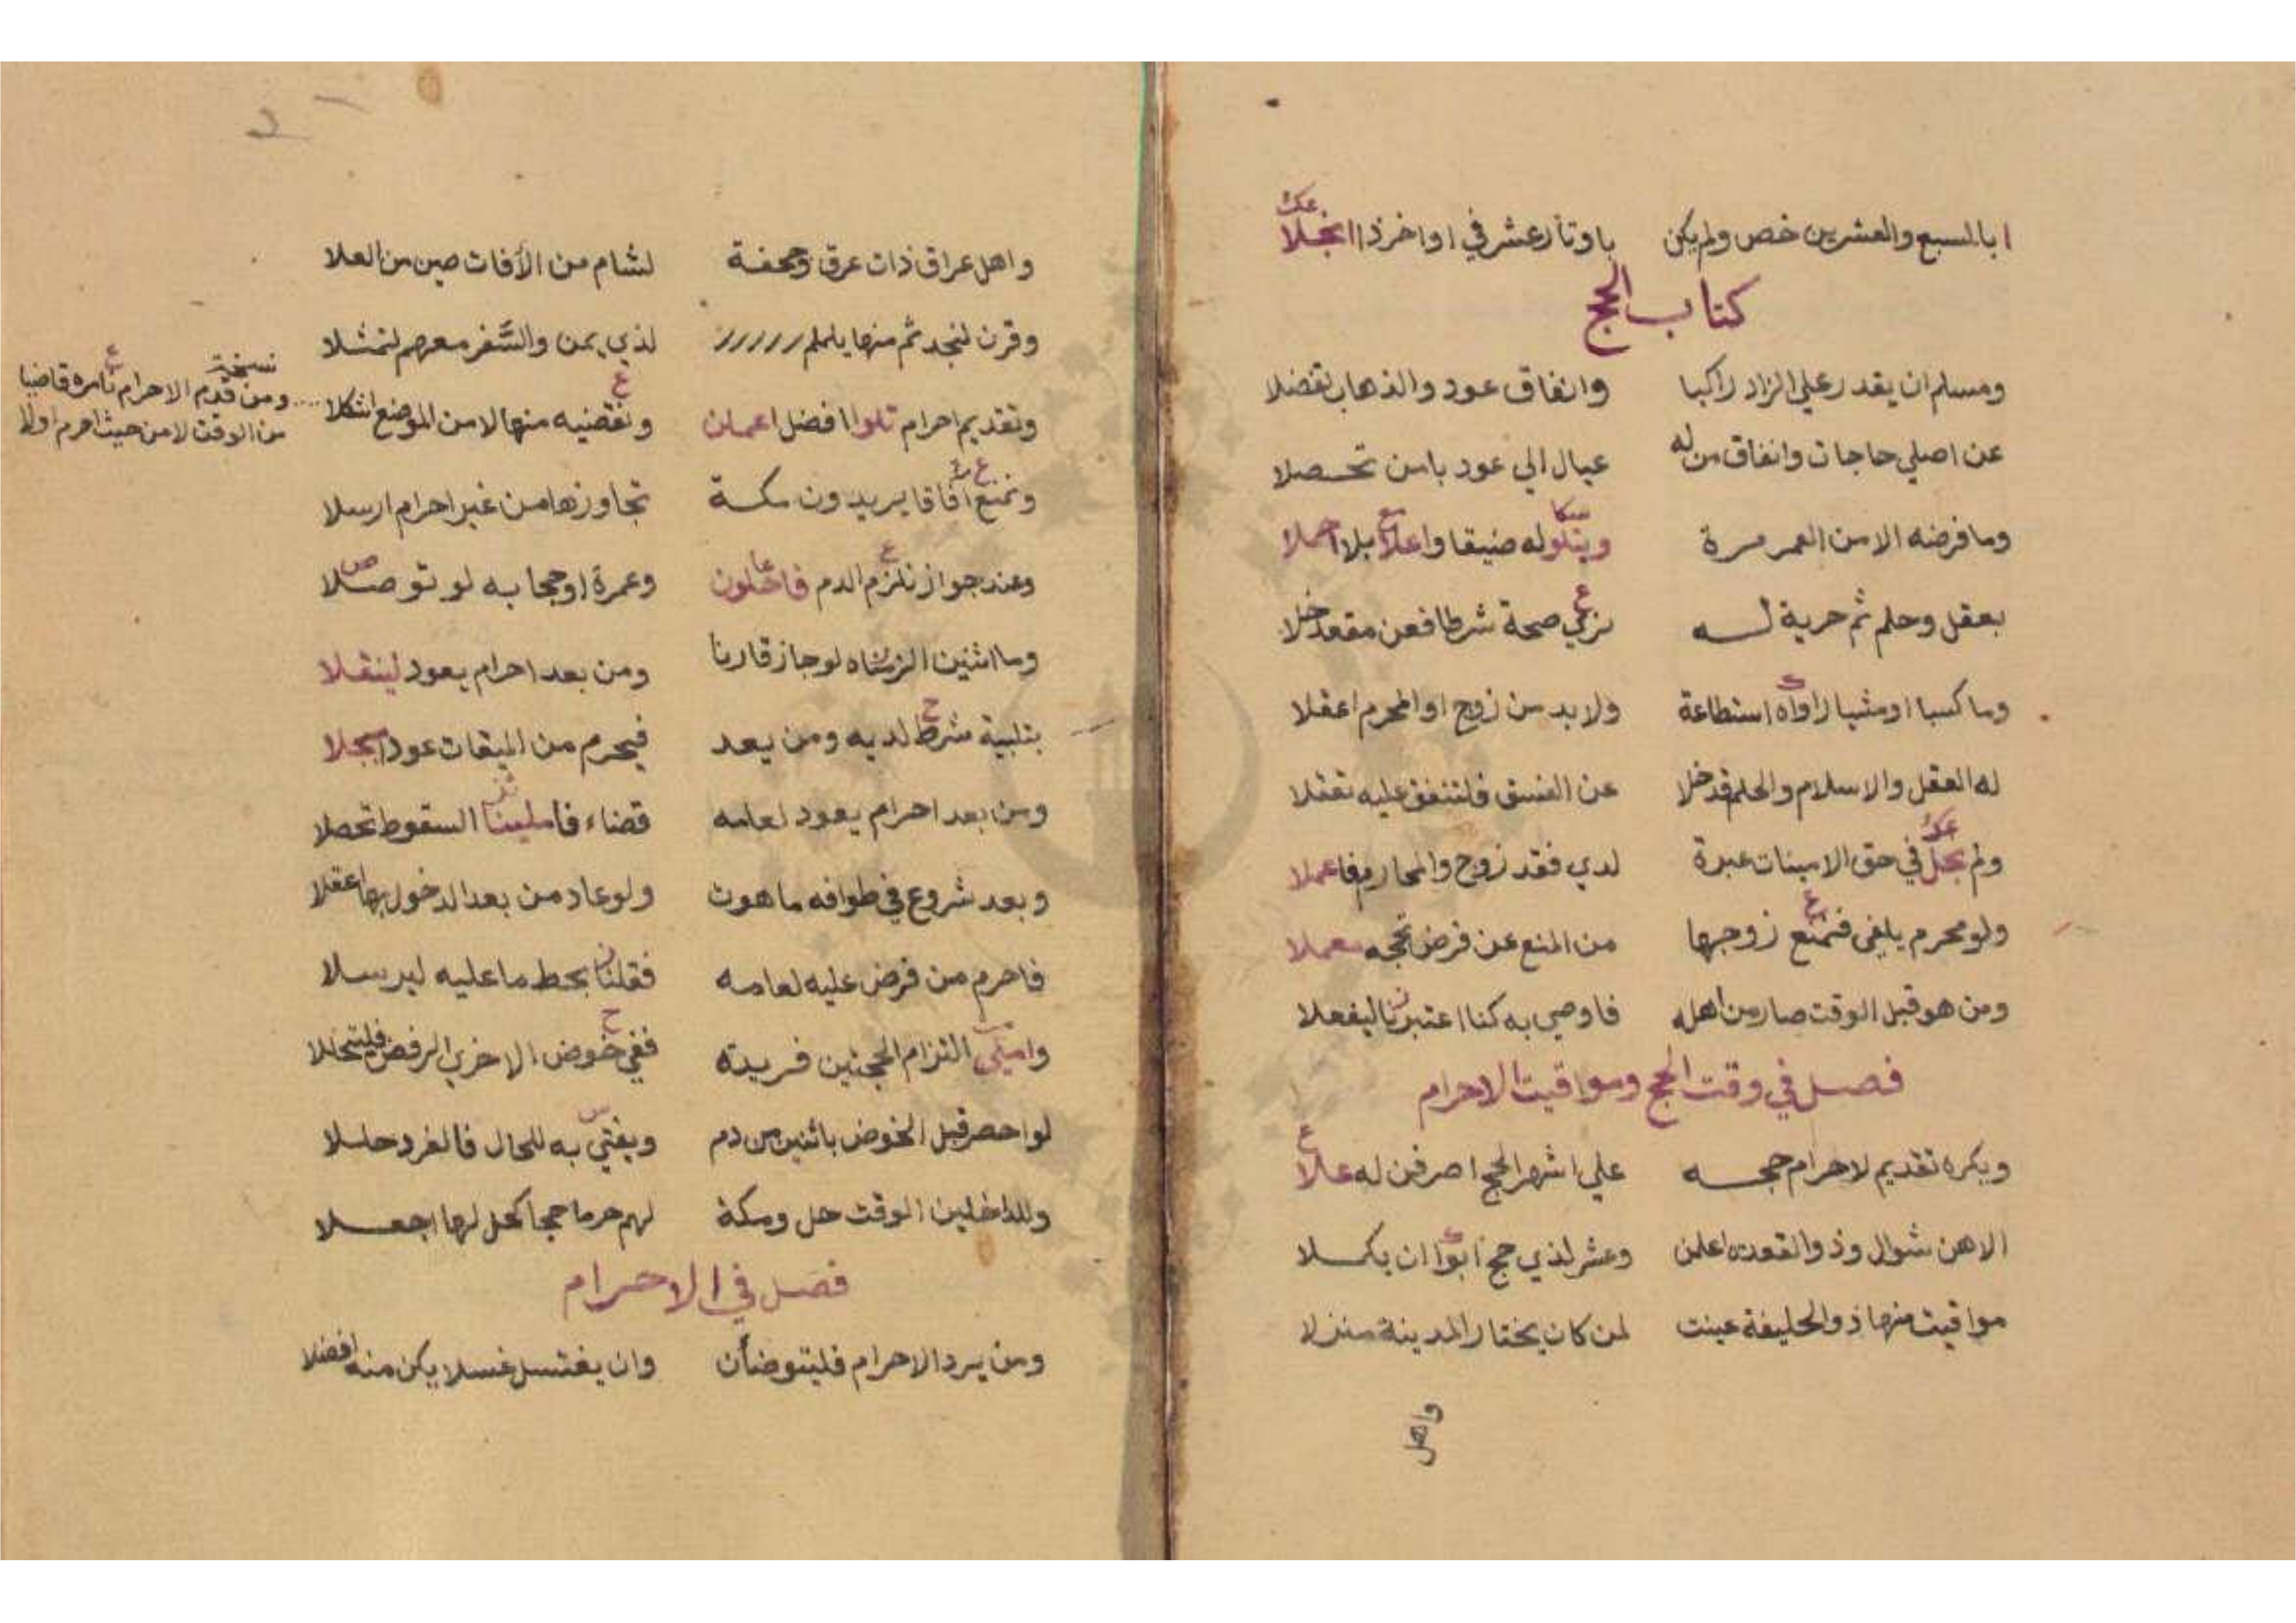 ابالسبع والعشرين خص ولم يكن باوتار عشر في اواخر ذا انجلا
كتاب الحج
ومسلم ان يقدر علي الزاد راكبا وانفاق عود والذهاب تفضلا
عن اصلي حاجات وانفاق من له عيال الي عود بامن تحصلا
وما فرضه الا من العمر مرة ويتلو له ضيقا واعلا بلا
بعقل وحلم ثم حرية له صحة شرطا فعن مقعد خلا
وما كسبا او مشيا راواه استطاعة ولا بد من زوج او المحرم اعقلا
له العقل والاسلام والحلم قد خلا عن الفسق فلتنفق عليه تفقلا
ولم في حق الامينات عبرة لدي فقد زوج والمحارم فاعملا
ولو محرم يلفي فتمنع زوجها من المنع عن فرض تحجه معملا
ومن هو قبل الوقت صار من اهله فاوصي به كنا اعتبرنا ليفعلا
فصل في وقت الحج ومواقيت الاحرام
ويكره تقديم لاحرام حجه علي اشهر الحج اصرفن له علا
الا هن شوال وذو القعدة اعلمن وعشر لذي حج ابوا ان يكملا
مواقيت منها ذو الحليفة عينت لمن كان يختار المدينة منزلا
واهل
واهل عراق ذات عرق وجحفة لشام من الأفات صين من العلا
وقرن لنجد ثم منها يلملم لذي يمن والسفر معهم لتمثلا
وتقديم احرام تلوا افضل اعملن ونقضيه منها لا من الموضع اشكلا
نسخة
ومن قدم الاحرام نامره قاضيا
من الوقت لا من حيث احرم اولا
ونمنع افاقا يريدون مكة تجاوزها من غير احرام ارسلا
وعند جواز نلزم الدم وعمرة او حجا به لو توصلا
وما اثنين الزمناه لو جاز قارنا ومن بعد احرام يعود لينقلا
بتلبية شرط لديه ومن يعد فيحرم من الميقات عودا
ومن بعد احرام يعود لعامه قضاء السقوط تحصلا
وبعد شروع في طوافه ما هون ولو عاد من بعد الدخول بها عقلا
فاحرم من فرض عليه لعامه فقلنا بحط ما عليه ليرسلا
التزام الحجتين فريدته ففي خوض الاخري الرفض
لو احصر قبل الخوض باثنين من دم ويفتي به للحال فالفرد حللا
وللداخلين الوقت حل ومكة لهم حرما حجا كحل لها اجعلا
فصل في الاحرام
ومن يرد الاحرام فليتوضأن وان يغتسل غسلا يكن منه افضلا